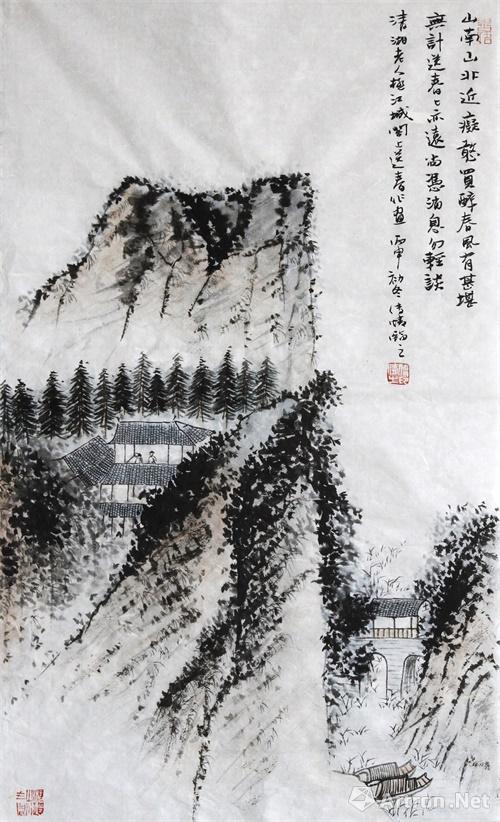 山南山北近癡憨買醉春風有甚堪
無計送春〻亦遠尚憑消息勿輕談
清湘老人 江城閣上送春作畫 丙申初冬
Artron.Net